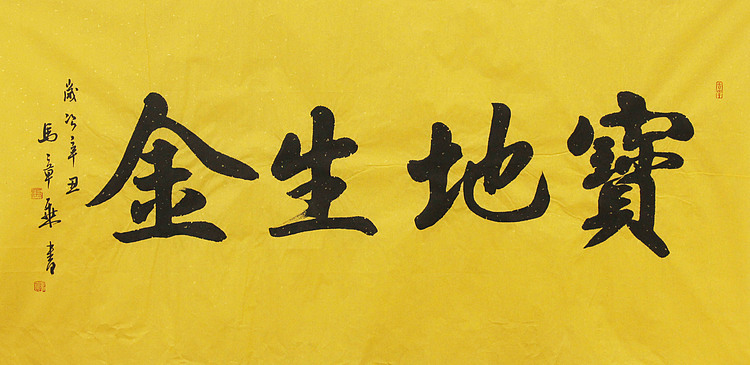 寳地生金
歲次辛丑
馬章乘書